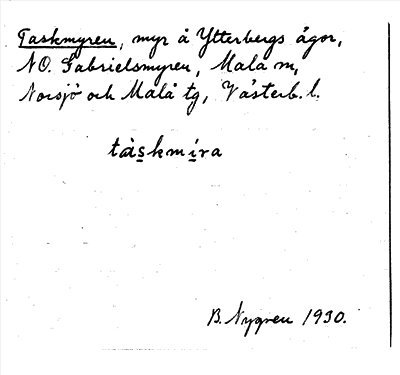 Taskmyren, myr å Ytterbergs ägor,
NO. Gabrielsmyren, Mala m,
Norsjö och Malå tg, Västerb. l.
tàskmíra
B. Nygren 1930.